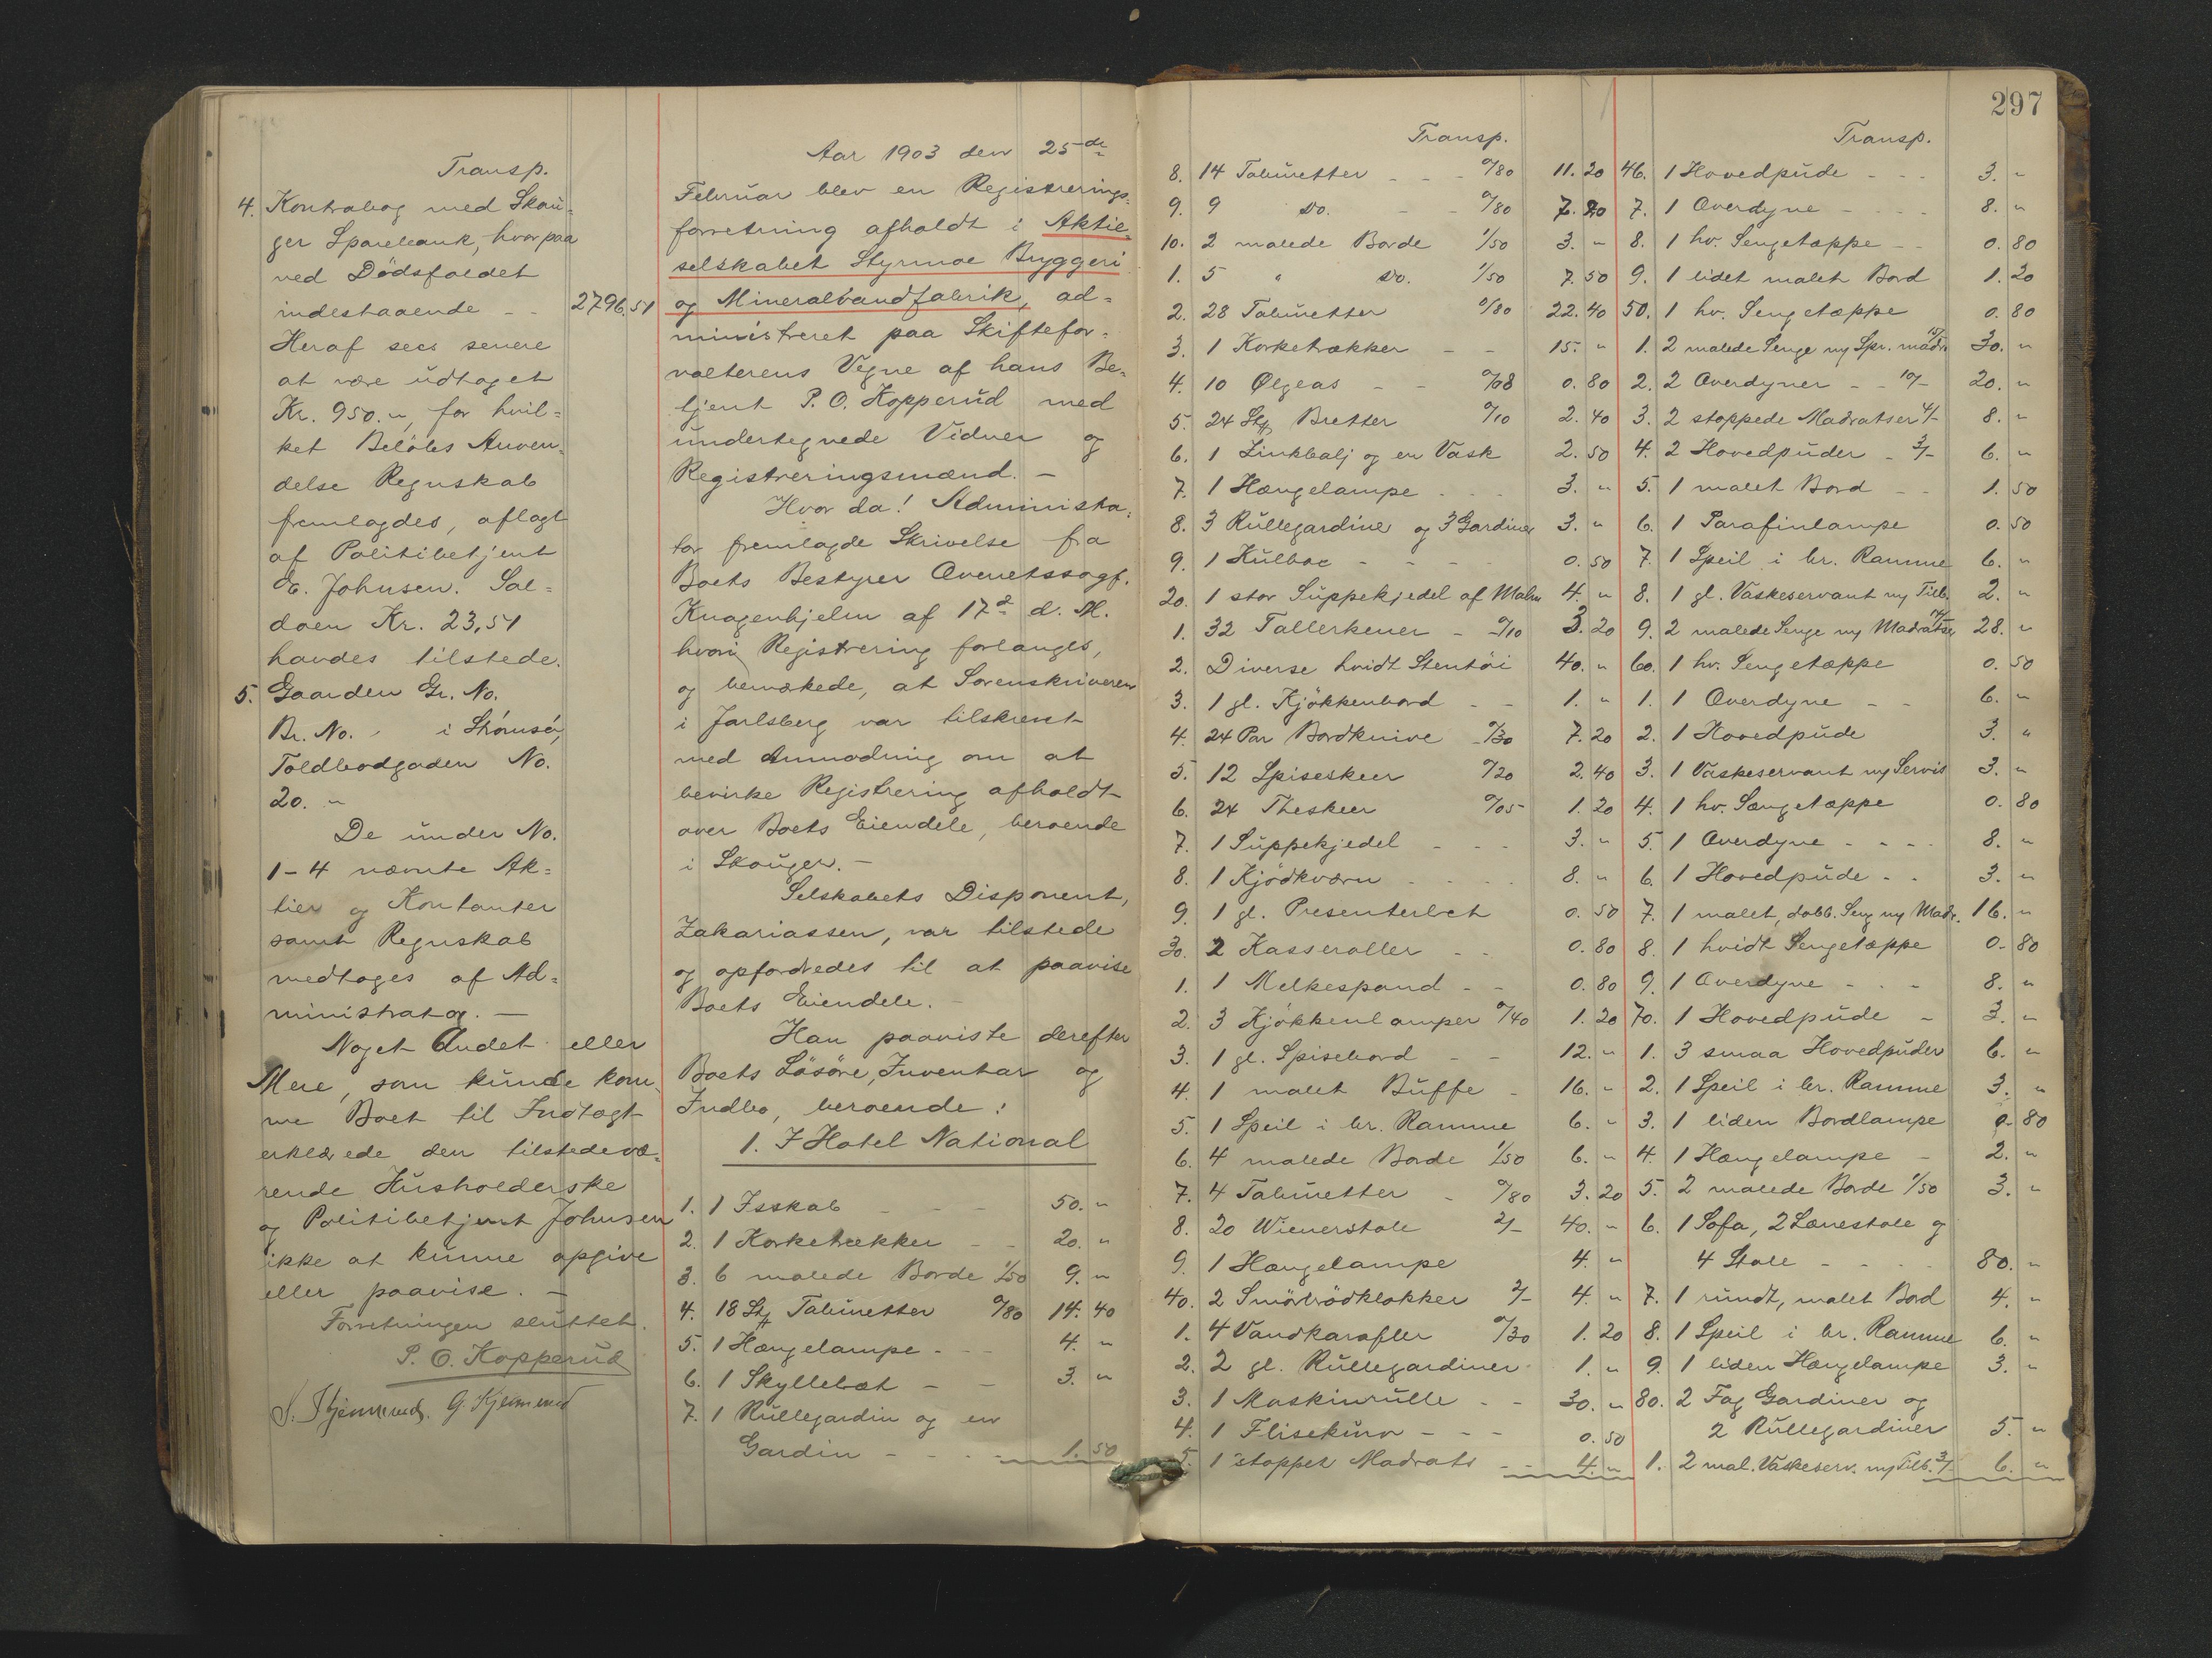 Transp.
4. Kontrabog med Skou-
ger Sparebank, hvorpaa
ved Dødsfaldet
indestaaende - - 2796.51
Heraf sees senere
at være udtaget
Kr. 950.", for hvil-
ket Beløbs Anven-
delse Regnskab
fremlagdes, aflagt
af Politibetjent
E. Johnsen. Sal-
doen Kr. 23,51
havdes tilstede.
5. Gaarden Gr. No.
Br. No. i Strömsö,
Toldbodgaden No.
20. "
De under No.
1-4 nævnte Ak-
tier og Kontanter
samt Regnskab
medtages af Ad-
ministrator. -
Noget Andet eller
Mere, som kunde kom-
me Boet til Indtægt
erklærede den tilstedevæ-
rende Husholderske
og Politibetjent Johnsen
ikke at kunne opgive
eller paavise. -
Forretningen sluttet.
P. O. Kopperud
G. Hjemmend
Aar 1903 den 25de
Februar blev en Registrerings-
forretning afholdt i Aktie-
selskabet Styrmoe Bryggeri
og Mineralvandfabrik, ad-
ministreret paa Skiftefor-
valterens Vegne af hans Be-
tjent P. O. Kopperud med
undertegnede Vidner og
Registreringsmænd. -
Hvor da! Administra-
tor fremlagde Skrivelse fra
Boets Bestyrer Overretssagf.
Knagenhjelm af 17de d. M.
hvori Registrering forlanges,
og bemærkede, at Sorenskriveren
i Jarlsberg var tilskrevet
med Anmodning om at
bevirke Registrering afholdt
over Boets Eiendele, beroende
i Skouger. -
Selskabets Disponent,
Zakariassen, var tilstede
og opfordredes til at paavise
Boets Eiendele. -
Han paaviste derefter
Boets Løsøre, Inventar og
Indbo, beroende:
1. I Hotel National
1. 1 Isskab - - - 50. "
2. 1 Korketrækker - - 20. "
3. 6 malede Borde 1/50 9. "
4. 18 Stk Taburetter 0/80 14.40
5. 1 Hængelampe - - 4. "
6. 1 Skyllebat - - 3. "
7. 1 Rullegardin og en
Gardin - - - - 1.50
Transp.
8. 14 Taburetter - - - 0/80 11.20
9. 9 Do. - - 0/80 7.20
10. 2 malede Borde 1/50 3. "
1. 5 " Do. 1/50 7.50
2. 28 Taburetter 0/80 22.40
3. 1 Korketrækker - - 15. "
4. 10 Ølglas - - 0/08 0.80
5. 24 Stk Bretter 0/10 2.40
6. 1 Zinkbalj og en Vask 2.50
7. 1 Hængelampe - - - 3. "
8. 3 Rullegardiner og 3 Gardiner 3. "
9. 1 Kulbox - - - - 0.50
20. 1 stor Suppekjedel af Malm 4. "
1. 32 Tallerkener - 0/10 3.20
2. Diverse hvidt Stentöi 40. "
3. 1 gl. Kjökkenbord - - 1. "
4. 24 Par Bordknive 0/30 7.20
5. 12 Spiseskeer 0/20 2.40
6. 24 Theskeer 0/05 1.20
7. 1 Suppekjedel - - - 3. "
8. 1 Kjödkværn - - - - 8. "
9. 1 gl. Presenterbret 0.50
30. 2 Kasseroller - - 0.80
1. 1 Melkespand - - 0.80
2. 3 Kjökkenlamper 0/40 1.20
3. 1 gl. Spisebord - - 12. "
4. 1 malet Buffe - 16. "
5. 1 Speil i br. Ramme 6. "
6. 4 malede Borde 1/50 6. "
7. 4 Taburetter - 0/80 3.20
8. 20 Wienerstole 2/- 40. "
9. 1 Hængelampe 4. "
40. 2 Smörbrödklokker 2/- 4. "
1. 4 Vandkarafler 0/30 1.20
2. 2 gl. Rullegardiner 1. "
3. 1 Maskinrulle - - 30. "
4. 1 Flisekurv - - - 0.50
5. 1 stoppet Madrats - - 4. "
297
Transp.
46. 1 Hovedpude - - - 3. "
7. 1 Overdyne - - - - 8. "
8. 1 hv. Sengetæppe - - 0.80
9. 1 lidet malet Bord 1.20
50. 1 hv. Sengetæppe 0.80
1. 2 malede Senge m/ Spr. madr. 15/- 30. "
2. 2 Overdyner - - 10/- 20. "
3. 2 stoppede Madratser 4/- 8. "
4. 2 Hovedpuder - 3/- 6. "
5. 1 malet Bord - - 1.50
6. 1 Parafinlampe 0.50
7. 1 Speil i br. Ramme 6. "
8. 1 gl. Vaskeservant m/ Tilb. 2. "
9. 2 malede Senge m/ Madratser 14/- 28. "
60. 1 hv. Sengetæppe 0.50
1. 1 Overdyne - - 6. "
2. 1 Hovedpude 3. "
3. 1 Vaskeservant m/ Servis 3. "
4. 1 hv. Sengetæppe 0.80
5. 1 Overdyne - - - - 8. "
6. 1 Hovedpude - - 3. "
7. 1 malet, dobb. Seng m/ Madr. 16. "
8. 1 hvidt Sengetæppe 0.80
9. 1 Overdyne - - - 8. "
70. 1 Hovedpude - 3. "
1. 3 smaa Hovedpuder 6. "
2. 1 Speil i br. Ramme 3. "
3. 1 liden Bordlampe 0.80
4. 1 Hængelampe - 2. "
5. 2 malede Borde 1/50 3. "
6. 1 Sofa, 2 Lænestole og
4 Stole - - - - 80. "
7. 1 rundt, malet Bord 4. "
8. 1 Speil i br. Ramme 6. "
9. 1 liden Hængelampe 3. "
80. 2 Fag Gardiner og
2 Rullegardiner 5. "
1. 2 mal. Vaskeserv. m/ Tilb. 3/- 6. "